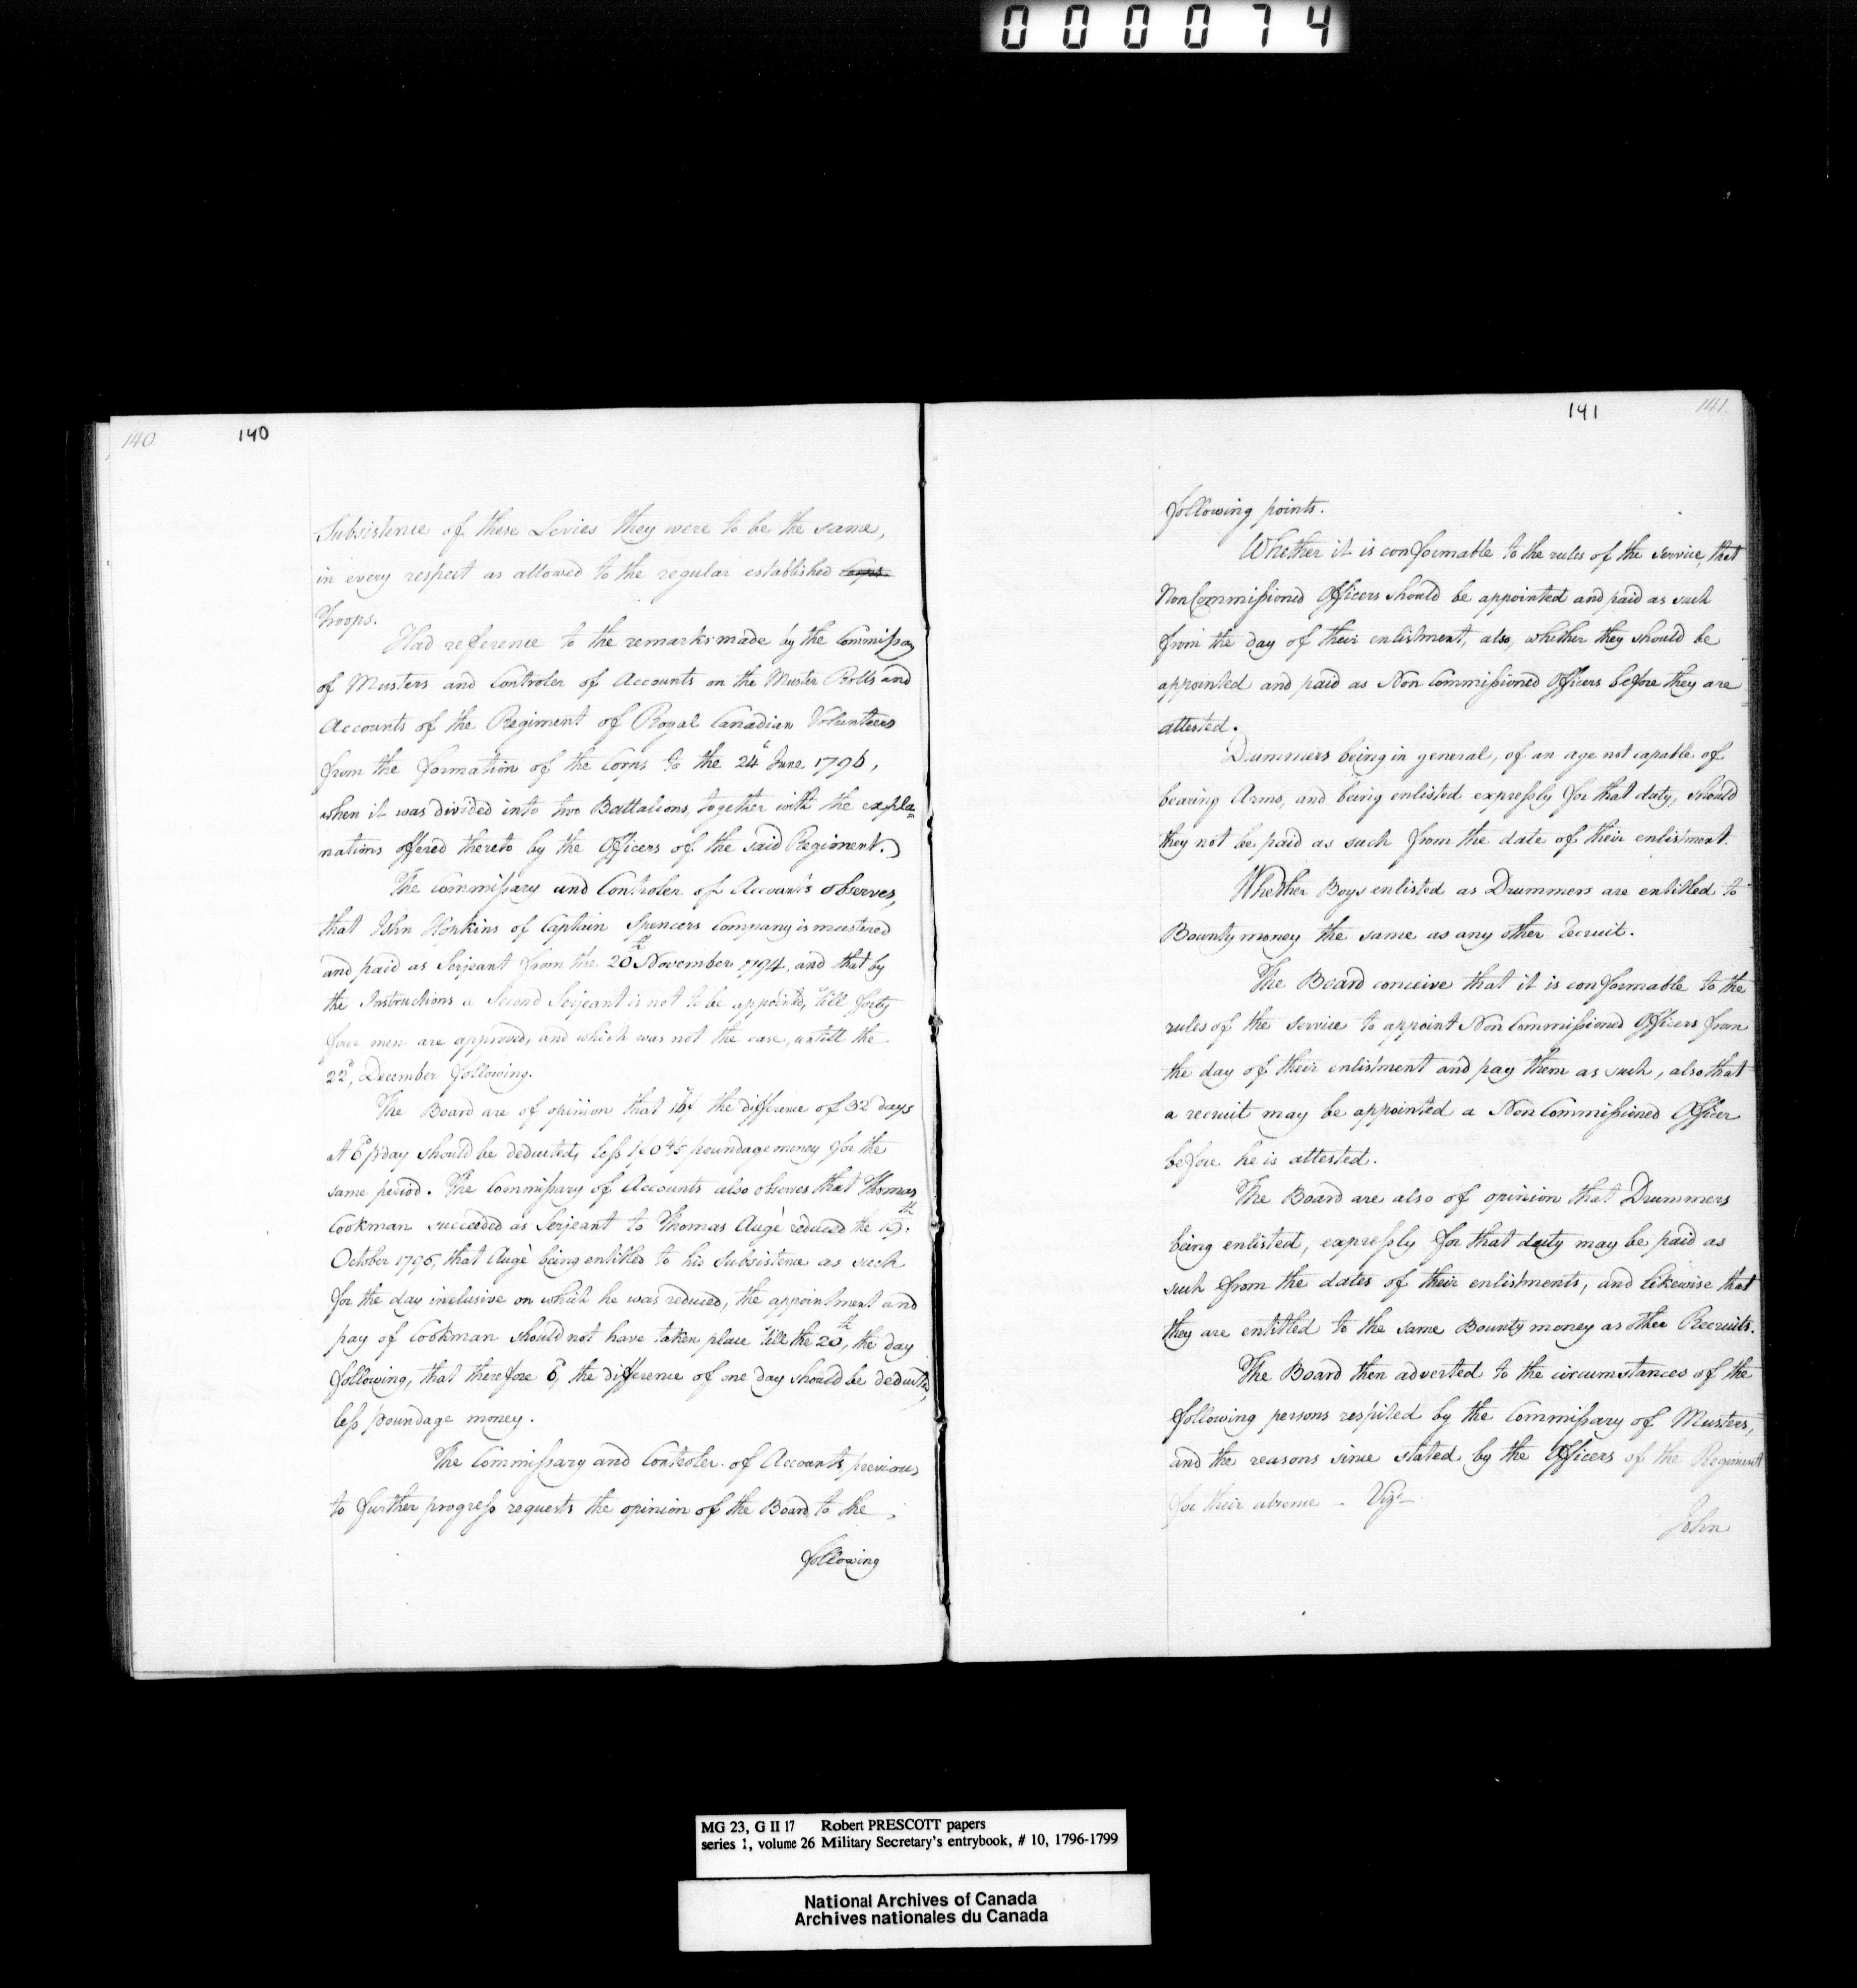 000074
140.
140
Subsistence of these Levies they were to be the same,
in every respect as allowed to the regular established Corps.
Troops.
Had reference to the remarks made by the Commissary
of Musters and Controler of Accounts on the Muster Rolls and
Accounts of the Regiment of Royal Canadian Volunteers
from the formation of the Corps to the 24th June 1796,
when it was divided into two Battalions, together with the expla=
nations offered thereto by the Officers of the said Regiment.
The Commissary and Controler of Accounts observes,
that John Hopkins of Captain Spencers Company is mustered
and paid as Serjeant from the 20th November 1794, and that by
the Instructions a Second Serjeant is not to be appointed, 'till forty
four men are approved, and which was not the case, untill the
22d, December following.
The Board are of opinion that 16/ the difference of 32 days
at 6d ⅌ day should be deducted, less poundage money for the
same period. The Commissary of Accounts also observes that Thomas
Cookman succeeded as Serjeant to Thomas Augè reduced the 19th
October 1795, that Augè being entitled to his Subsistence as such
for the day inclusive on which he was reduced, the appointment and
pay of Cookman should not have taken place 'till the 20th, the day
following, that therefore 6d, the difference of one day should be deducted,
less poundage money.
The Commissary and Controler of Accounts previous
to further progress requests the opinion of the Board, to the
following
141
141.
following points.
Whether it is conformable to the rules of the service, that
Non Commissioned Officers should be appointed and paid as such
from the day of their enlistment, also, whether they should be
appointed and paid as Non Commissioned Officers before they are
attested.
Drummers being in general, of an age not capable of
bearing Arms, and being enlisted expressly for that duty, should
they not be paid as such from the date of their enlistment.
Whether Boys enlisted as Drummers are entitled to
Bounty money the same as any other recruit.
The Board conceive that it is conformable to the
rules of the service to appoint Non Commissioned Officers from
the day of their enlistment and pay them as such, also that
a recruit may be appointed a Non Commissioned Officer
before he is attested.
The Board are also of opinion that Drummers
being enlisted, expressly for that duty may be paid as
such from the dates of their enlistments, and likewise that
they are entitled to the same Bounty money as other Recruits.
The Board then adverted to the circumstances of the
following persons respited by the Commissary of Musters,
and the reasons since stated by the Officers of the Regiment
for their absence — Vizt—
John
MG 23, G II 17 Robert PRESCOTT papers
series 1, volume 26 Military Secretary's entrybook, # 10, 1796-1799
National Archives of Canada
Archives nationales du Canada